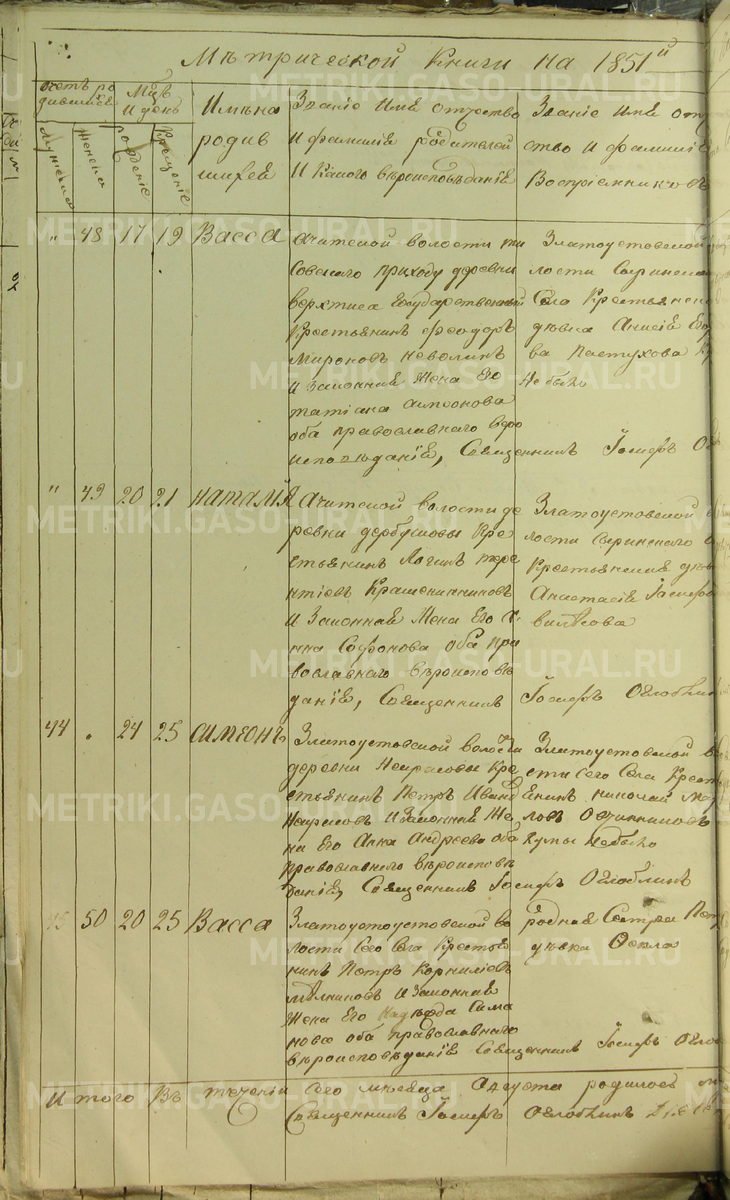 Метрической Книги на 1851й
Счетъ родившихся
Мужеска
Женска
Мцъ и день
рожденіе
Крещеніе
Имѣна родившихся
Званіе Имѣ отчество
и фамиліѣ родителей
и Какого вѣроисповѣданіѣ
Званіе Имѣ отч
ство и фамиліѣ
Воспріемниковъ
" 48 17 19 Васса
Ачитской волости ти
совскаго приходу деревни
верхтиса Государственный
Крестьянинъ феодоръ
Мироновъ неволинъ
и Законная Жена Его
татіана симеонова
оба православнаго веро
исповѣданіѣ, Священникъ Іосифъ Огл
Златоустовской
лости Сыринскаго
Села Крестьянска
дѣвка Анисіѣ Его
ва Пастухова
не было
" 49 20 21 наталіѣ
Ачитской волости де
ревни дербушовы Кре
стьянинъ Логинъ тере
нтіевъ Крашенинниковъ
и Законная Жена Его
нна Софонова оба пра
вославнаго вѣроисповѣ
даніѣ, Священникъ Іосифъ Оглоблинъ
Златоустовской
лости Сыринскаго
Крестьянская дѣв
Анастасіѣ Іосифо
44 " 24 25 Симеонъ
Златоустовской волости
деревни Некрасовы Кре
стьянинъ Петръ Ивано
Некрасовъ и Законная Же
на Его Анна Андреева оба
православнаго вѣроисповѣ
даніѣ, Священникъ Іосифъ Оглоблинъ
Златоустовской в
сти сего Села Крест
янинъ николай
ловъ Овчинниковъ
Кумы не было
50 20 25 Васса
Златоустоустовской во
лости Сего Села Крестья
нинъ Петръ Корниліевъ
мѣлниковъ и Законная
Жена Его Надѣжда Сима
нова оба православнаго
вѣроисповѣданіѣ Священникъ Іосифъ Огло
родная Сестра Пет
дѣвка Фекла
Итого Въ теченіи Сего мѣсяца Августа родилось
Священникъ Іосифъ Оглоблинъ
METRIKI.GASO-URAL.RU